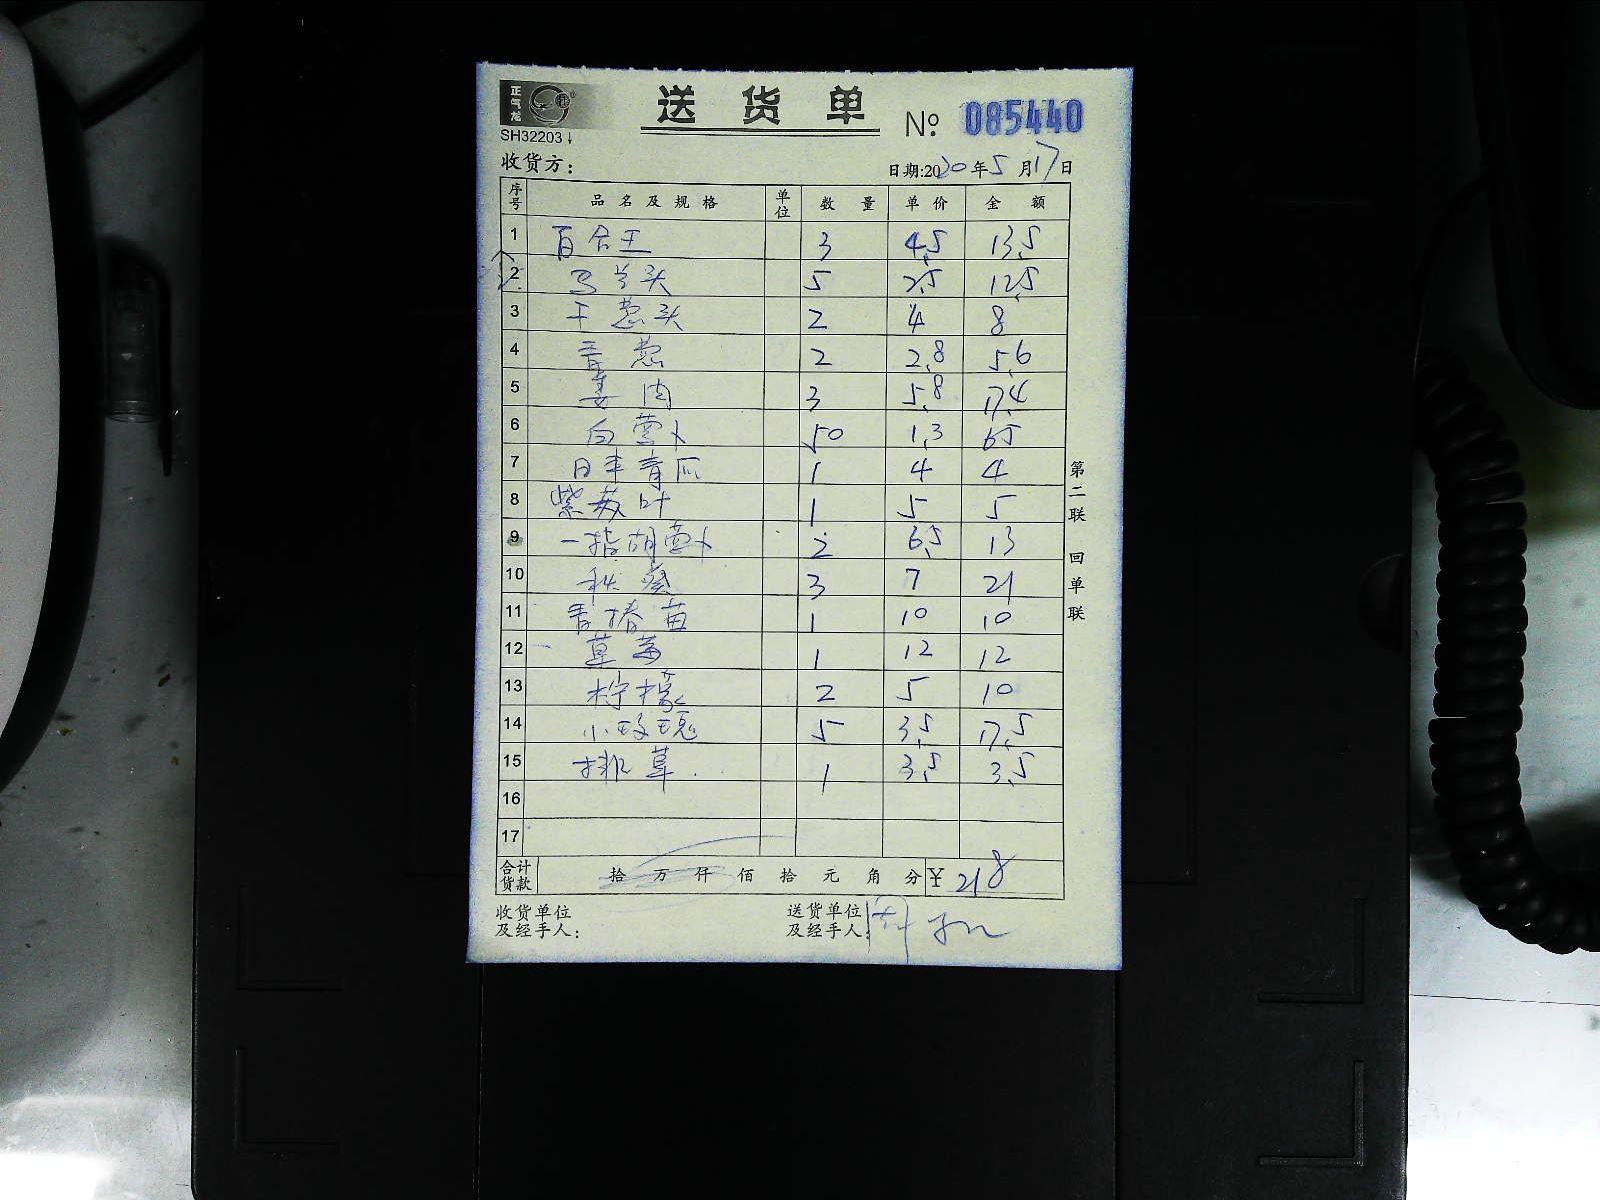 正气龙
SH32203
送 货 单 № 085440
收货方： 日期:2020年5月17日
序号 品名及规格 单位 数量 单价 金额
1 百合王 3 4.5 13.5
2 马兰头 5 2.5 12.5
3 干葱头 2 4 8
4 青葱 2 2.8 5.6
5 姜肉 3 5.8 17.4
6 白萝卜 50 1.3 65
7 日本青瓜 1 4 4
8 紫苏叶 1 5 5
9 一指胡萝卜 2 6.5 13
10 秋葵 3 7 21
11 香椿苗 1 10 10
12 草莓 1 12 12
13 柠檬 2 5 10
14 小玫瑰 5 3.5 17.5
15 排草 1 3.5 3.5
16
17
合计货款 拾 万 仟 佰 拾 元 角 分 ¥ 218
收货单位及经手人： 送货单位及经手人：
第二联 回单联